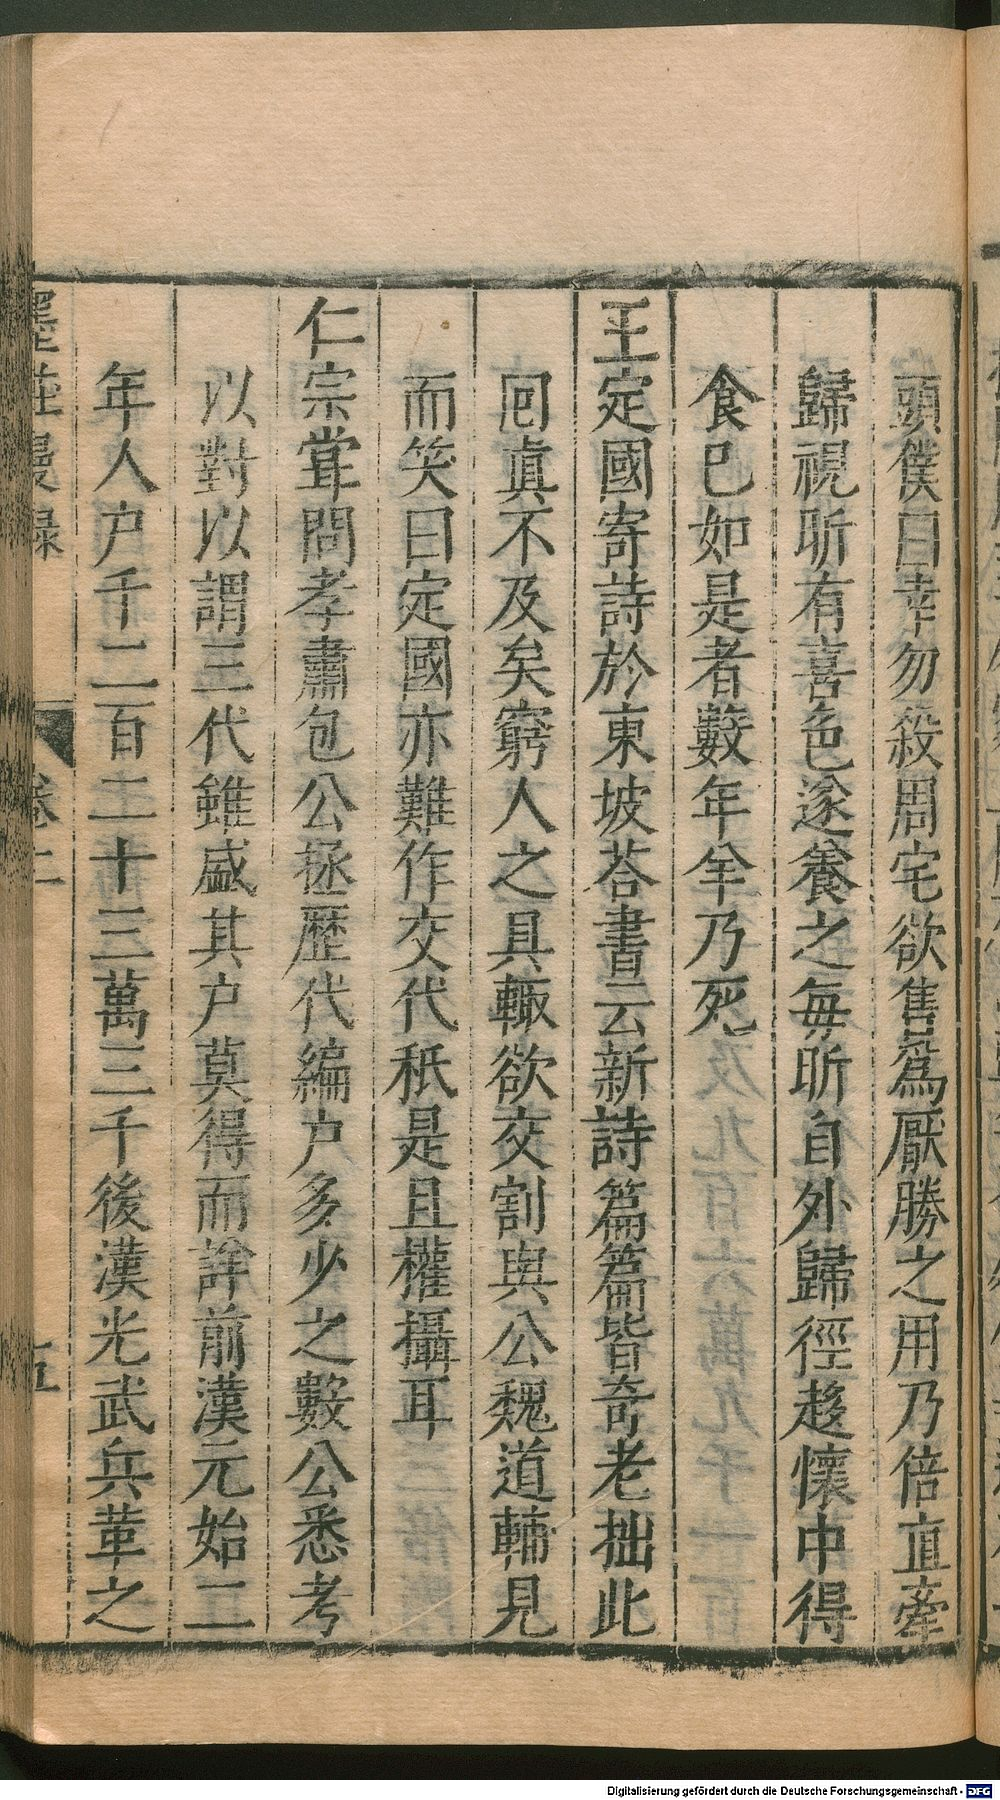 頭僕曰幸勿殺周宅欲售爲厭勝之用乃倍直牽
歸視昕有喜色遂養之每昕自外歸徑趍懷中得
食巳如是者數年羊乃死
王定國寄詩於東坡荅書云新詩篇篇皆奇老拙此
囘眞不及矣窮人之具輙欲交割與公魏道輔見
而笑曰定國亦難作交代秖是且權攝耳
仁宗甞問孝肅包公拯歷代編户多少之數公悉考
以對以謂三代雖盛其户莫得而詳前漢元始二
年人户千二百二十三萬三千後漢光武兵革之
墨莊漫録
卷二
五
Digitalisierung gefördert durch die Deutsche Forschungsgemeinschaft - DFG